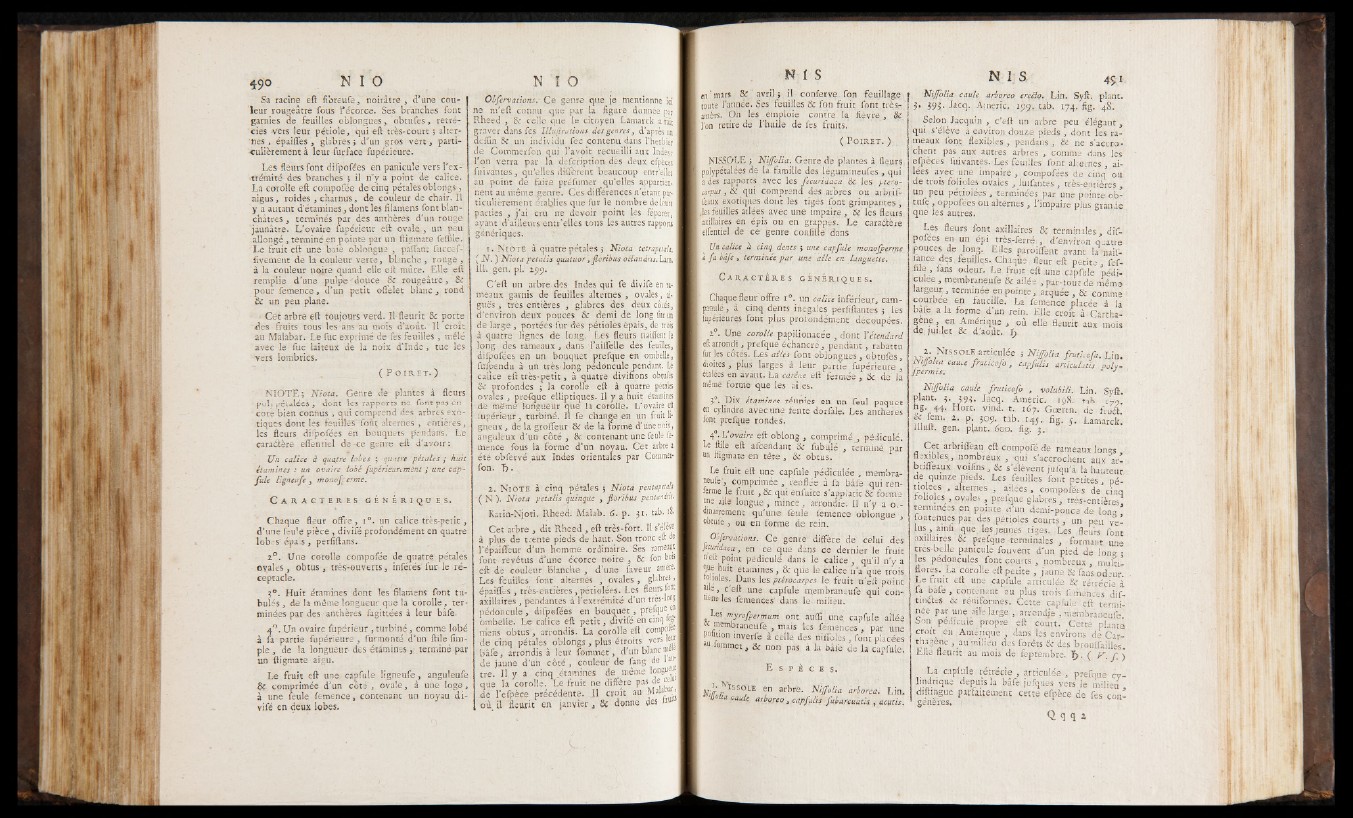 490 N I O
Sa racine est fibreuse, noirâtre, d'une cou-
leur rougeâtre sous l'écorce. Ses branches sont
garnies de feuilles oblongues, obtuses, rétré-
cies vers leur pétiole, qui est très-court ; alter-
nes, épaisses, glabres ; d'un gros vert, parti-
culièrement à leur surface supérieure.
Les fleurs sont disposées en panicule vers l'ex-
trémité des branches ; il n'y a point de calice.
La corolle est composée de cinq pétales oblongs,
aigus, roides, charnus, de couleur de chair. Il
y a autant d'étamines, dont les filamens sont blan-
châtres, terminés par des anthères d'un rouge
jaunâtre. L'ovaire supérieur est ovale, un peu
allongé, terminé en pointe par un stigmate sessile.
Le fruit est une baie oblongue, passant succes-
sivement de la couleur verte, blanche, rouge,
à la couleur noire quand elle est mûre. Elle est
remplie d'une pulpe douce & rougeâtre, &
pour semence, d'un petit osselet blanc, rond
& un peu plane.
Cet arbre est toujours verd. Il fleurit & porte
des fruits tous les ans au mois d'août. Il croît
au Malabar. Le suc exprimé de ses feuilles, mêlé
avec le suc laiteux de la noix d'Inde, tue les
vers lombrics.
( POIRET. )
NIOTE ; Niota. Genre de plantes à fleurs
polypétalées, dont les rapports ne sont pas en-
core bien connus, qui comprend des arbres exo-
tiques dont les feuilles sont alternes, entières,
les fleurs disposées en bouquets pendans. Le
caractère essentiel de ce genre est d'avoir :
Un calice à quatre lobes ; quatre pétales ; huit
étamines ; un ovaire lobé supérieurement ; une cap-
sule ligneuse, monosperme.
CARACTERES GÉNÉRIQUES.
Chaque fleur offre, 1°. un calice très-petit,
d'une seule pièce, divisé profondément en quatre
lobes épais, persistans.
2°. Une corolle composée de quatre pétales
ovales, obtus, très-ouverts, insérés sur le ré-
ceptacle.
3°. Huit étamines dont les filamens sont tu-
bulés, de la même longueur que la corolle, ter-
minées par des anthères sagittées à leur base.
4°. Un ovaire supérieur, turbiné, comme lobé
à sa partie supérieure, surmonté d'un stile sim-
ple, de la longueur des étamines, terminé par
un stigmate aigu.
Le fruit est une capsule ligneuse, anguleuse
& comprimée d'un côté, ovale, à une loge,
à une seule semence, contenant un noyau di-
visé en deux lobes.
N I O
Observations. Ce genre que je mentionne ici
ne m'est connu que par la figure donnée par
Rheed, & celle que le citoyen Lamarck a fait
graver dans ses Illustrations des genres, d'après un
dessin & un individu sec contenu dans l'herbier
de Commerson qui l'avoit recueilli aux Indes ;
l'on verra par la description des deux espèces
suivantes, qu'elles diffèrent beaucoup entr'elles
au point de faire présumer qu'elles appartien-
nent au même genre. Ces différences n'étant par-
ticulièrement établies que sur le nombre de leurs
parties, j'ai cru ne devoir point les séparer,
ayant d'ailleurs entr'elles tous les autres rapports
génériques.
1. NIOTE à quatre pétales ; Niota tetrapetala.
( N. ) Niota petalis quatuor, floribus octandris. Lam.
Ill. gen. pl. 299.
C'est un arbre des Indes qui se divise en ra-
meaux garnis de feuilles alternes, ovales, ai-
guës, très entières, glabres des deux côtés,
d'environ deux pouces & demi de long sur un
de large, portées sur des pétioles épais, de trois
à quatre lignes de long. Les fleurs naissent le
long des rameaux, dans l'aisselle des feuilles,
disposées en un bouquet presque en ombelle,
suspendu à un très long pédoncule pendant. Le
calice est très-petit, à quatre divisions obtuses
& profondes ; la corolle est à quatre pétales
ovales, presque elliptiques. Il y a huit étamines
de même longueur que la corolle. L'ovaire est
supérieur, turbiné. Il se change en un fruit li-
gneux, de la grosseur & de la forme d'une noix,
anguleux d'un côté, & contenant une seule se-
mence sous la forme d'un noyau. Cet arbre a
été observé aux Indes orientales par Commer-
son. ♄.
2. NIOTE à cinq pétales ; Niota pentapetala.
( N ). Niota petalis quinque, floribus pentandris.
Karin-Njoti. Rheed. Malab. 6. p. 31. tab. 18.
Cet arbre, dit Rheed, est très-fort. Il s'élève
à plus de trente pieds de haut. Son tronc est de
l'épaisseur d'un homme ordinaire. Ses rameaux
sont revêtus d'une écorce noire, & son bois
est de couleur blanche, d'une saveur amère.
Les feuilles sont alternes, ovales, glabres,
épaisses, très-entières, pétiolées. Les fleurs sont
axillaires, pendantes à l'extrémité d'un très-long
pédoncule, disposées en bouquet, presque en
ombelle. Le calice est petit, divisé en cinq seg-
mens obtus, arrondis. La corolle est composée
de cinq pétales oblongs, plus étroits vers leur
base, arrondis à leur sommet, d'un blanc mêlé
de jaune d'un côté, couleur de sang de l'au-
tre. Il y a cinq étamines de même longueur
que la corolle. Le fruit ne diffère pas de celui
de l'espèce précédente. Il croît au Malabar,
où il fleurit en janvier, & donne des fruits
N I S
en mars & avril ; il conserve son feuillage
toute l'année. Ses feuilles & son fruit sont très-
amers. On les emploie contre la fièvre, &
l'on retire de l'huile de ses fruits.
( POIRET. )
NISSOLE ; Nissolia. Genre de plantes à fleurs
polypétalées de la famille des légumineuses, qui
a des rapports avec les securidaca & les ptero-
carpus, & qui comprend des arbres ou arbris-
seaux exotiques dont les tiges sont grimpantes,
les feuilles ailées avec une impaire, & les fleurs
axillaires en épis ou en grappes. Le caractère
essentiel de ce genre consiste dans
Un calice à cinq dents ; une capsule monosperme
à sa base, terminée par une aîle en languette.
CARACTÈRES GÉNÉRIQUES.
Chaque fleur offre 1°. un calice inférieur, cam-
panule, à cinq dents inégales persistantes ; les
supérieures sont plus profondément découpées.
2°. Une corolle papilionacée, dont l'étendard
est arrondi, presque échancré, pendant, rabattu
sur les côtés. Les aîles sont oblongues, obtuses,
étroites, plus larges à leur partie supérieure,
étalées en avant. La carène est fermée, & de la
même forme que les aîles.
3°. Dix étamines réunies en un seul paquet
en cylindre avec une fente dorsale. Les anthères
sont presque rondes.
4°. L'ovaire est oblong, comprimé, pédiculé.
Le stile est ascendant & subulé, terminé par
un stigmate en tête, & obtus.
Le fruit est une capsule pédiculée, membra-
neuse, comprimée, renflée à sa base qui ren-
ferme le fruit, & qui ensuite s'applatit & forme
une aîle longue, mince, arrondie. Il n'y a or-
dinairement qu'une seule semence oblongue,
obtuse, ou en forme de rein.
Observations. Ce genre diffère de celui des
securidaca, en ce que dans ce dernier le fruit
n'est point pédiculé dans le calice, qu'il n'y a
que huit étamines, & que le calice n'a que trois
folioles. Dans les ptérocarpes le fruit n'est point
ailé, c'est une capsule membraneuse qui con-
tient les semences dans le milieu.
Les myrospermum ont aussi une capsule ailée
& membraneuse, mais les semences, par une
position inverse à celle des nissoles, sont placées
au sommet, & non pas à la base de la capsule.
ESPÈCES.
1. NISSOLE en arbre. Nissolia arborea. Lin.
Nissolia caule arboreo, capsulis subarcuatis, acutis.
N I S 491
Nissolia caule arboreo erecto. Lin. Syst. plant.
3. 393. Jacq. Americ. 199. tab. 174. fig. 48.
Selon Jacquin, c'est un arbre peu élégant,
qui s'élève à environ douze pieds, dont les ra-
meaux sont flexibles, pendans, & ne s'accro-
chent pas aux autres arbres, comme dans les
espèces suivantes. Les feuilles sont alternes, ai-
lées avec une impaire, composées de cinq ou
de trois folioles ovales, luisantes, très-entières,
un peu pétiolées, terminées par une pointe ob-
tuse, opposées ou alternes, l'impaire plus grande
que les autres.
Les fleurs sont axillaires & terminales, dis-
posées en un épi très-serré, d'environ quatre
pouces de long. Elles paroissent avant la nais-
sance des feuilles. Chaque fleur est petite, ses-
sile, sans odeur. Le fruit est une capsule pédi-
culée, membraneuse & ailée, par-tout de même
largeur, terminée en pointe, arquée, & comme
courbée en faucille. La semence placée à la
base a la forme d'un rein. Elle croît à Cartha-
gène, en Amérique, où elle fleurit aux mois
de juillet & d'août. ♄
2. NISSOLE articulée ; Nissolia fruticosa. Lin.
Nissolia caule fruticoso, capsulis articulatis poly-
spermis.
Nissolia caule fruticoso, volubili. Lin. Syst.
plant. 3. 393. Jacq. Americ. 198. tab. 179.
fig. 44. Hort. vind. t. 167. Gœrtn. de fruct.
& sem. 2. p. 309. tab. 145. fig. 5. Lamarck.
Illust. gen. plant. 600. fig. 3.
Cet arbrisseau est composé de rameaux longs,
flexibles, nombreux, qui s'accrochent aux ar-
brisseaux voisins, & s'élèvent jusqu'à la hauteur
de quinze pieds. Les feuilles sont petites, pé-
tiolées, alternes, ailées, composées de cinq
folioles, ovales, presque glabres, très-entières,
terminées en pointe d'un demi-pouce de long,
soutenues par des pétioles courts, un peu ve-
lus, ainsi que les jeunes tiges. Les fleurs sont
axillaires & presque terminales, formant une
très belle panicule souvent d'un pied de long ;
les pédoncules sont courts, nombreux, multi-
flores. La corolle est petite, jaune & sans odeur.
Le fruit est une capsule articulée & rétrécie à
sa base, contenant au plus trois semences dis-
tinctes & réniformes. Cette capsule est termi-
née par une aîle large, arrondie, membraneuse.
Son pédicule propre est court. Cette plante
croît en Amérique, dans les environs de Car-
thagène, au milieu des forêts & des broussailles.
Elle fleurit au mois de septembre. ♄. ( V. s. )
La capsule rétrécie, articulée, presque cy-
lindrique depuis la base jusques vers le milieu,
distingue parfaitement cette espèce de ses con-
génères.
Q q q 2